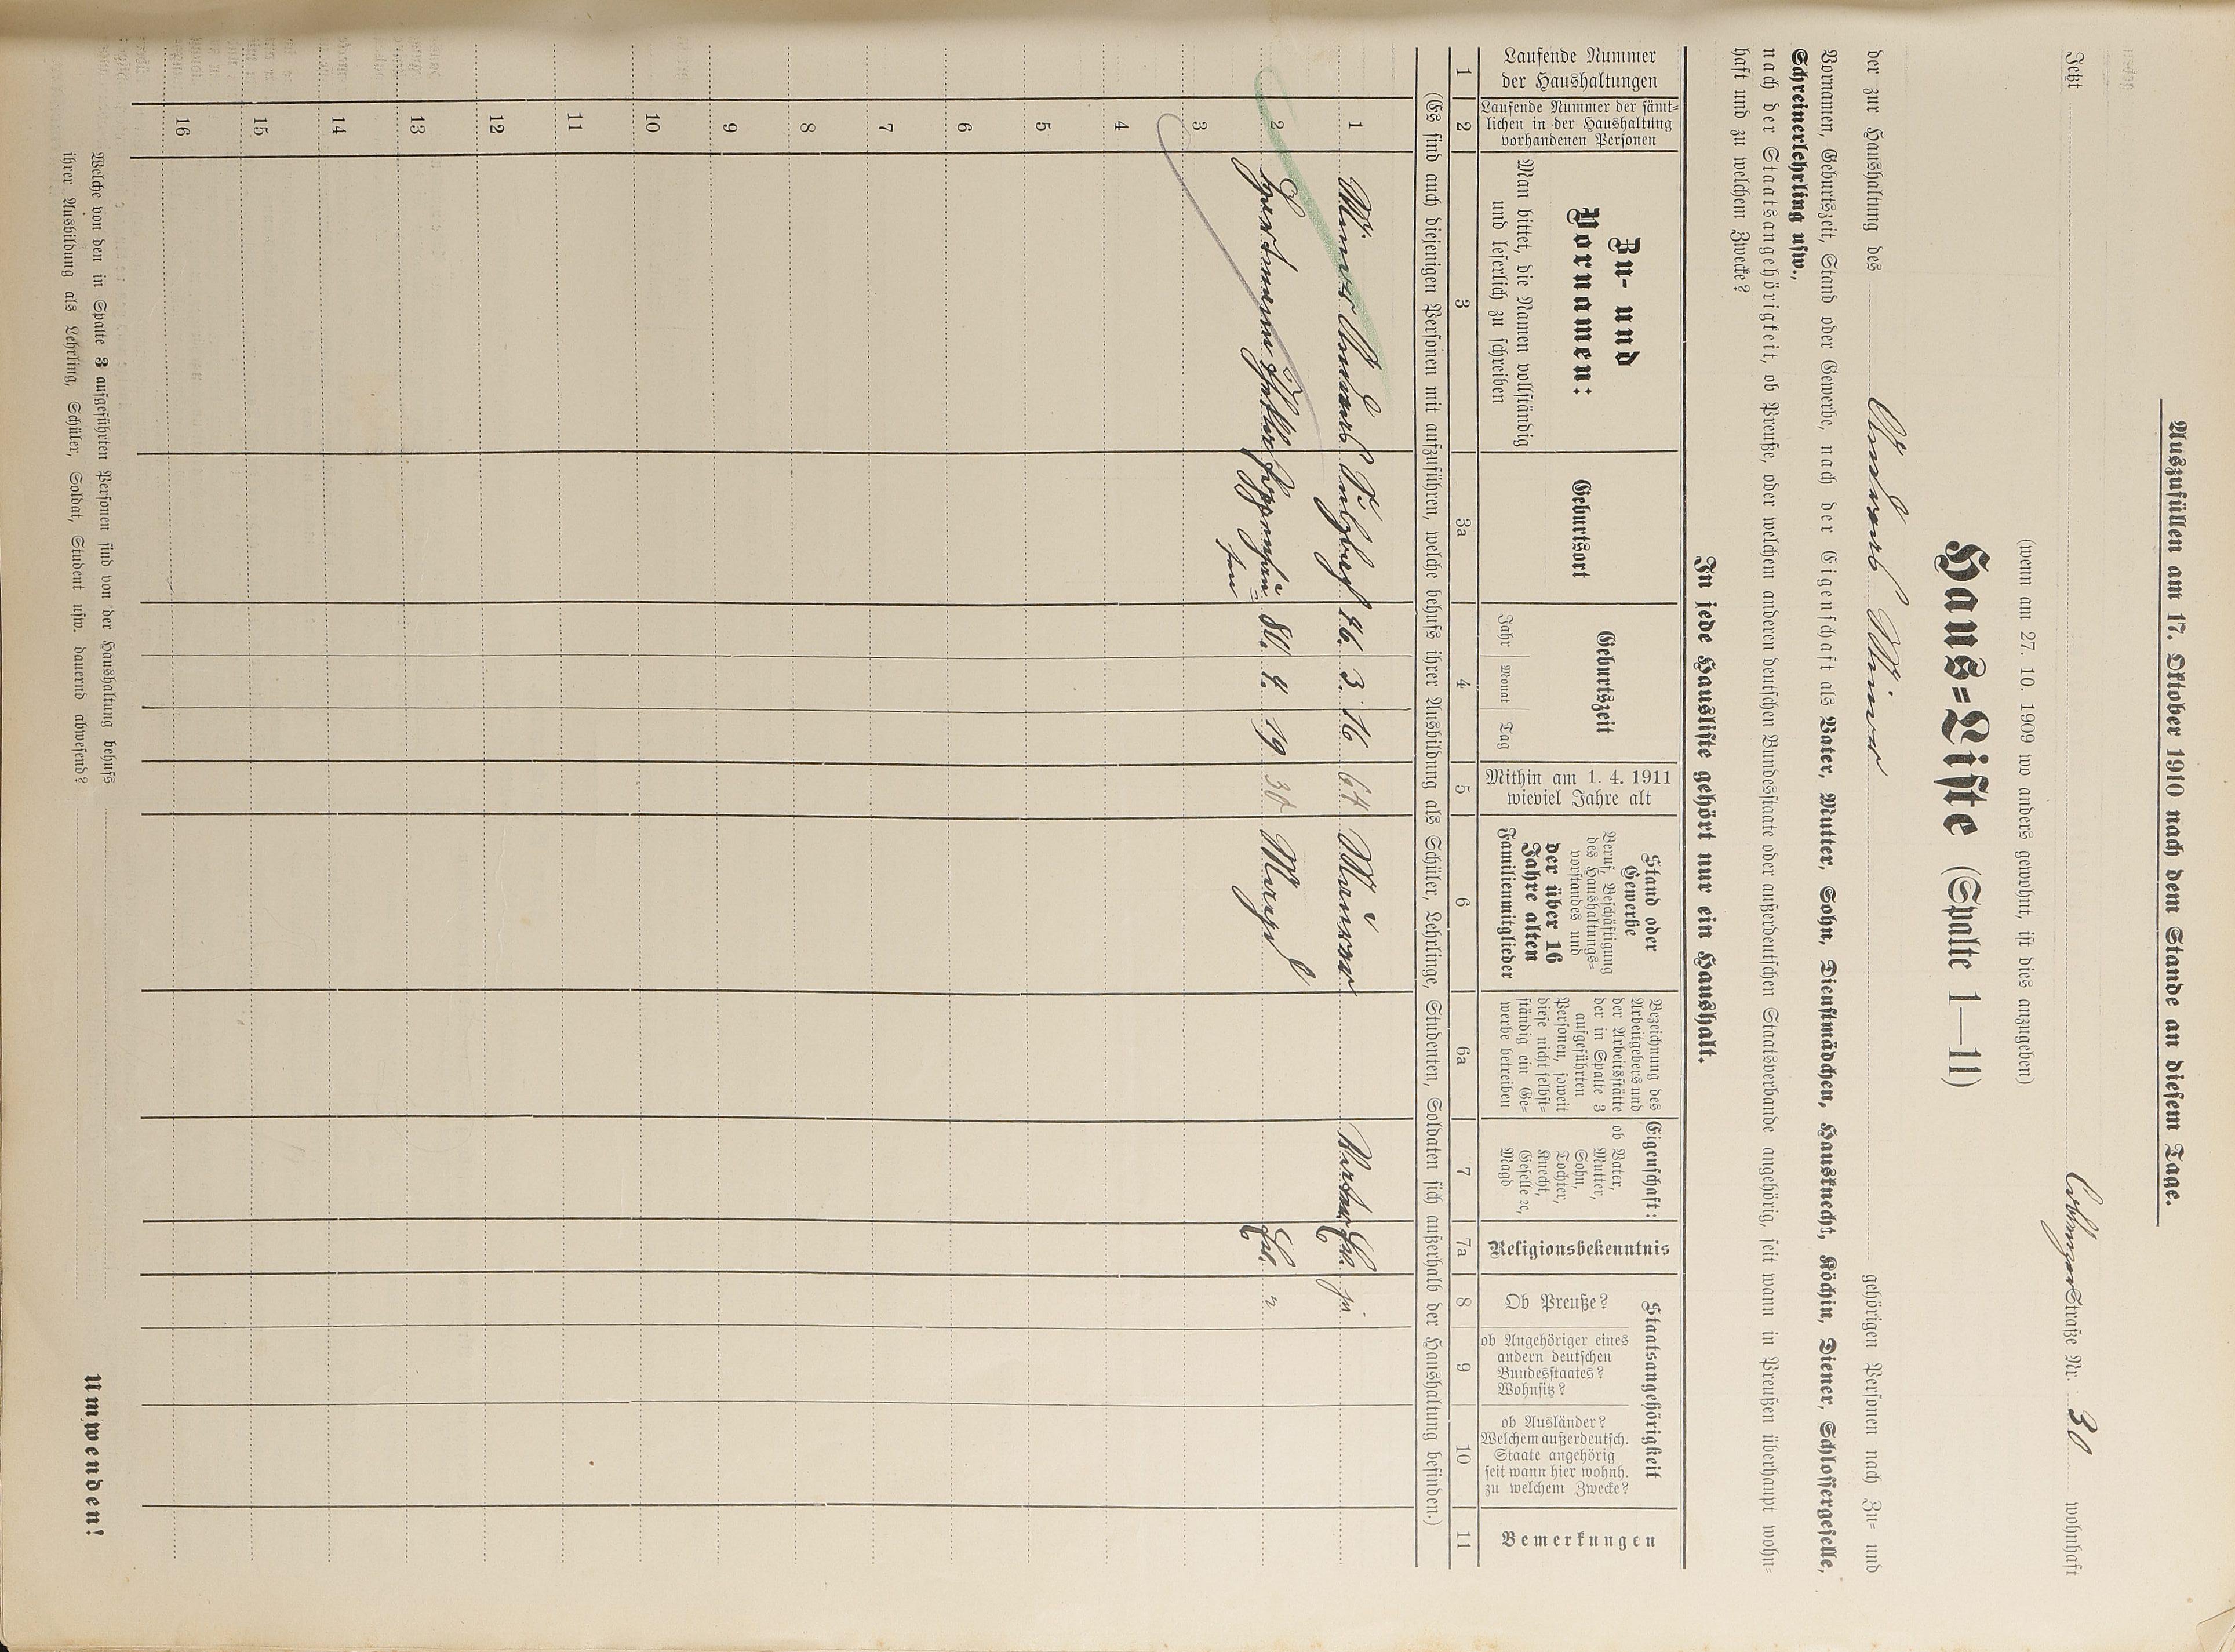 Auszufüllen am 17. Oktober 1910 nach dem Stande an diesem Tage.
Jetzt Straße Nr. 30 wohnhaft
(wenn am 27. 10. 1909 wo anders gewohnt, ist dies anzugeben)
Haus=Liste (Spalte 1—11)
der zur Haushaltung des Andreas gehörigen Personen nach Zu= und
Vornamen, Geburtszeit, Stand oder Gewerbe, nach der Eigenschaft als Vater, Mutter, Sohn, Dienstmädchen, Hausknecht, Köchin, Diener, Schlossergeselle,
Schreinerlehrling usw.,
nach der Staatsangehörigkeit, ob Preuße, oder welchem anderen deutschen Bundesstaate oder außerdeutschen Staatsverbande angehörig, seit wann in Preußen überhaupt wohn=
haft und zu welchem Zwecke?
In jede Hausliste gehört nur ein Haushalt.
Laufende Nummer
der Haushaltungen
Laufende Nummer der sämt=
lichen in der Haushaltung
vorhandenen Personen
Zu- und
Vornamen:
Man bittet, die Namen vollständig
und leserlich zu schreiben
Geburtsort
Geburtszeit
Jahr Monat Tag
Mithin am 1. 4. 1911
wieviel Jahre alt
Stand oder
Gewerbe
Beruf, Beschäftigung
des Haushaltungs=
vorstandes und
der über 16
Jahre alten
Familienmitglieder
Bezeichnung des
Arbeitgebers und
der Arbeitsstätte
der in Spalte 3
aufgeführten
Personen, soweit
diese nicht selbst=
ständig ein Ge=
werbe betreiben
Eigenschaft:
ob Vater,
Mutter,
Sohn,
Tochter,
Knecht,
Geselle ꝛc,
Magd
Religionsbekenntnis
Staatsangehörigkeit
Ob Preuße?
ob Angehöriger eines
andern deutschen
Bundesstaates?
Wohnsitz?
ob Ausländer?
Welchem außerdeutsch.
Staate angehörig
seit wann hier wohnh.
zu welchem Zwecke?
Bemerkungen
1 2 3 3a 4 5 6 6a 7 7a 8 9 10 11
(Es sind auch diejenigen Personen mit aufzuführen, welche behufs ihrer Ausbildung als Schüler, Lehrlinge, Studenten, Soldaten sich außerhalb der Haushaltung befinden.)
1 Andreas 46. 3. 16 64 ja
2 81. 4. 19. Magd
3
4
5
6
7
8
9
10
11
12
13
14
15
16
Welche von den in Spalte 3 aufgeführten Personen sind von der Haushaltung behufs
ihrer Ausbildung als Lehrling, Schüler, Soldat, Student usw. dauernd abwesend?
Umwenden!